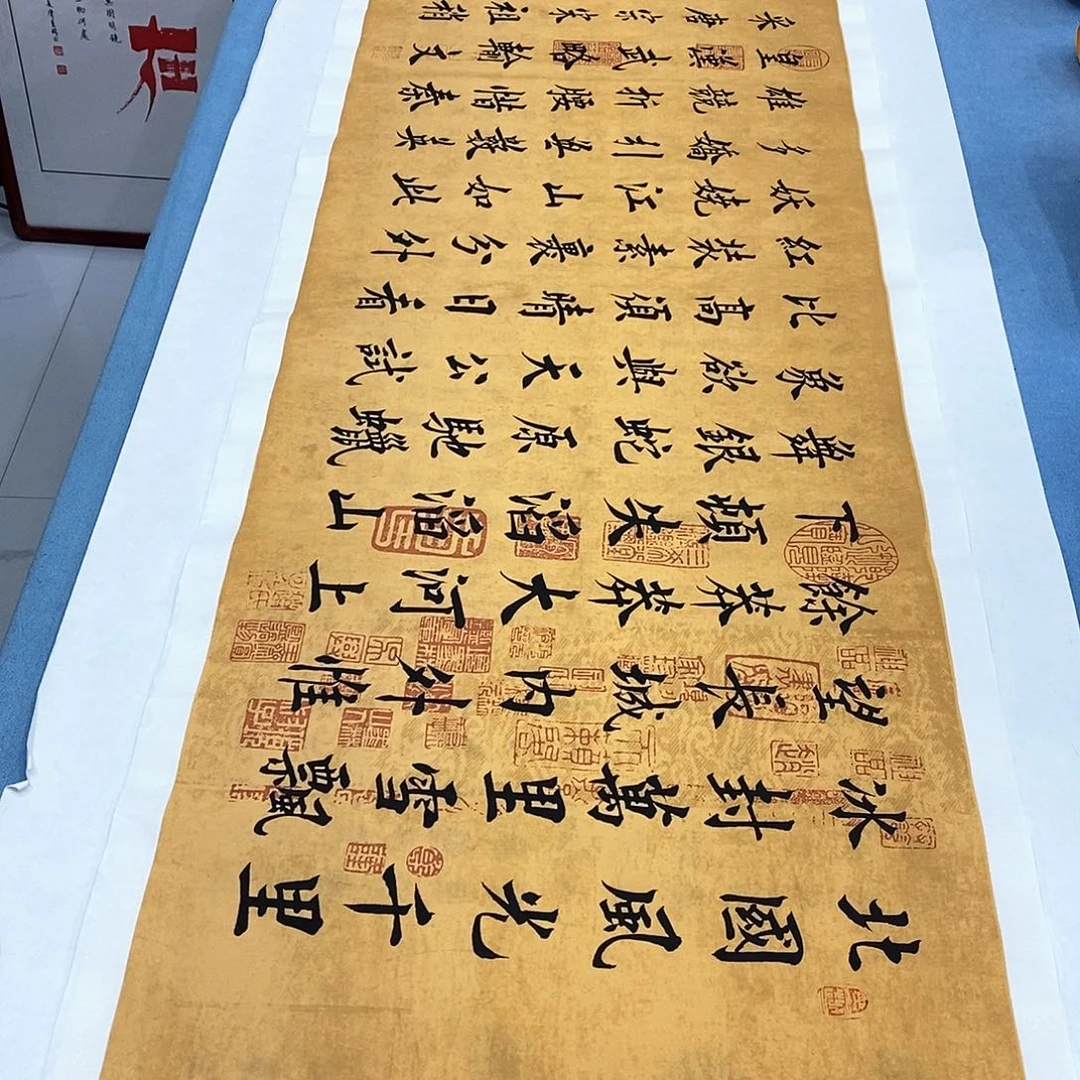 北國風光千里
冰封萬里雪飄
望長城内外惟
餘莽莽大河上
下頓失滔滔山
舞銀蛇原馳蠟
象欲與天公試
比高須晴日看
紅装素裹分外
妖嬈江山如此
多嬌引無數英
雄競折腰惜秦
皇漢武略輸文
采唐宗宋祖稍